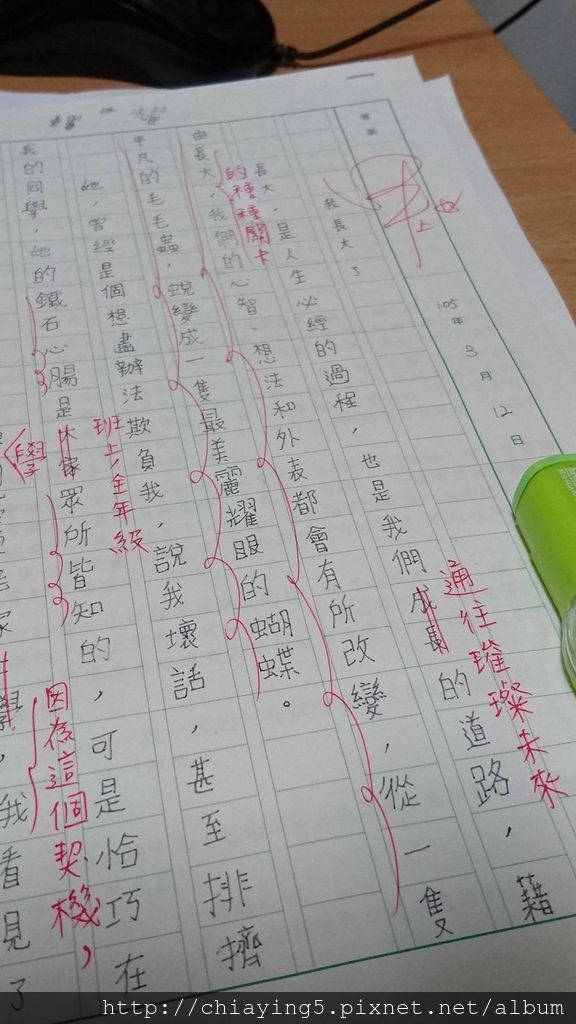 105年3月12日
我長大了
長大，是人生必經的過程，也是我們成長的道路，藉
通往璀璨未來
由長大，我們的心智、想法和外表都會有所改變，從一隻
的種種關卡
平凡的毛毛蟲，蛻變成一隻最美麗耀眼的蝴蝶。
她，曾經是個想盡辦法欺負我，說我壞話，甚至排擠
我的同學，她的鐵石心腸是大家眾所皆知的，可是恰巧在
班上、全年級
同學
因為這個契機，
我看見了
http://chiaying5.pixnet.net/album